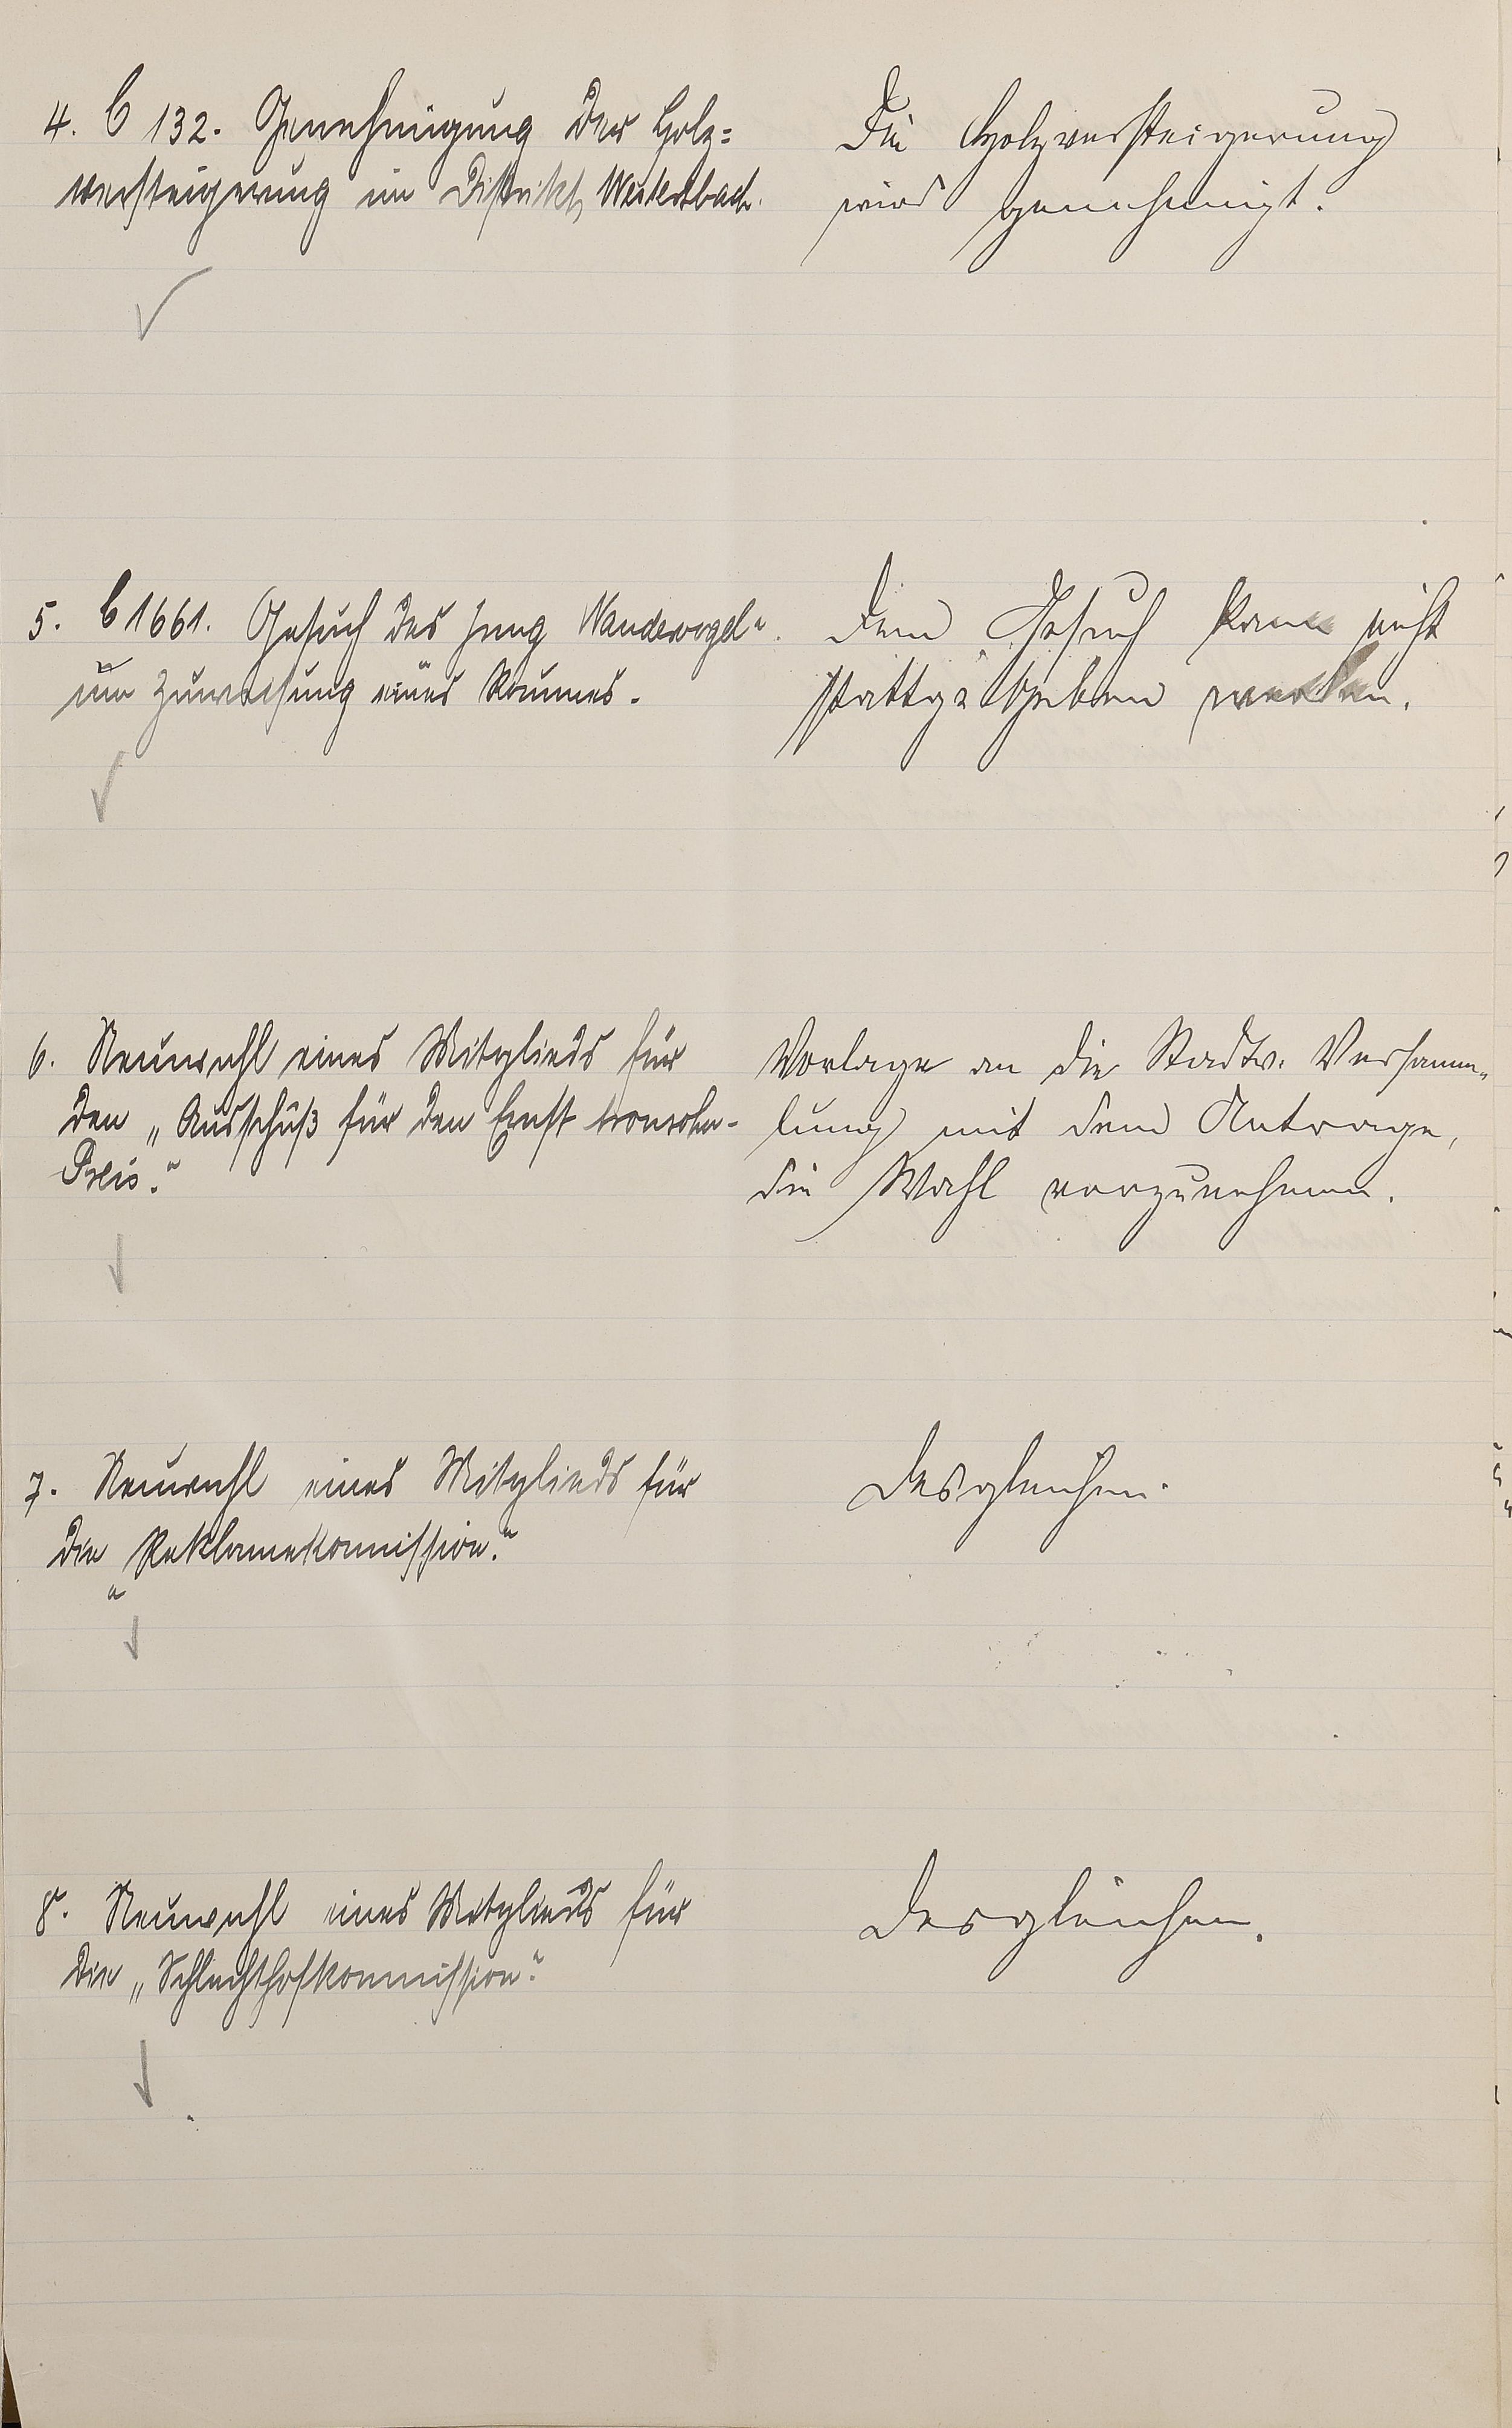 4. C 132. Genehmigung der Holz=
versteigerung im Distrikt
Die Holzversteigerung
wird genehmigt.
5. C 1661. Gesuch des Jung Wandervogel"
um Zuweisung eines Raumes.
Dem Gesuch kann nicht
stattgegeben werden.
6. Neuwahl eines Mitglieds für
den „Ausschuß für den Ernst
Preis."
Vorlage an die Stadtv. Versamm-
lung mit dem Antrage,
die Wahl vorzunehmen.
7. Neuwahl eines Mitglieds für
die „Reklamekommission."
Desgleichen.
8. Neuwahl eines Mitglieds für
die „Schlachthofkommission."
Desgleichen.